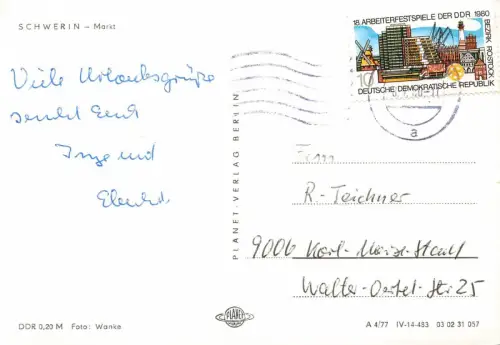 SCHWERIN – Markt
Viele Urlaubsgrüße
sendet Euch
Inge und
Eberhard
PLANET-VERLAG BERLIN
18. ARBEITERFESTSPIELE DER DDR 1980
BEZIRK ROSTOCK
10
DEUTSCHE DEMOKRATISCHE REPUBLIK
a
R. Teichner
9006 Karl-Marx-Stadt
Walter-Oertel-Str 25
DDR 0,20 M Foto: Wanke
PLANET
A 4/77 IV-14-483 03 02 31 057